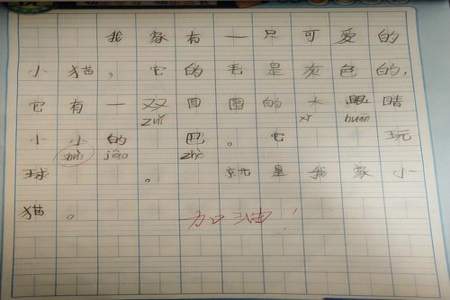 我家有一只可爱的
小猫，它的毛是灰色的，
它有一双圆圆的大眼睛
小小的 巴。它 玩
zuǐ xǐ huān
球 。 就是我家小
猫。
加油！